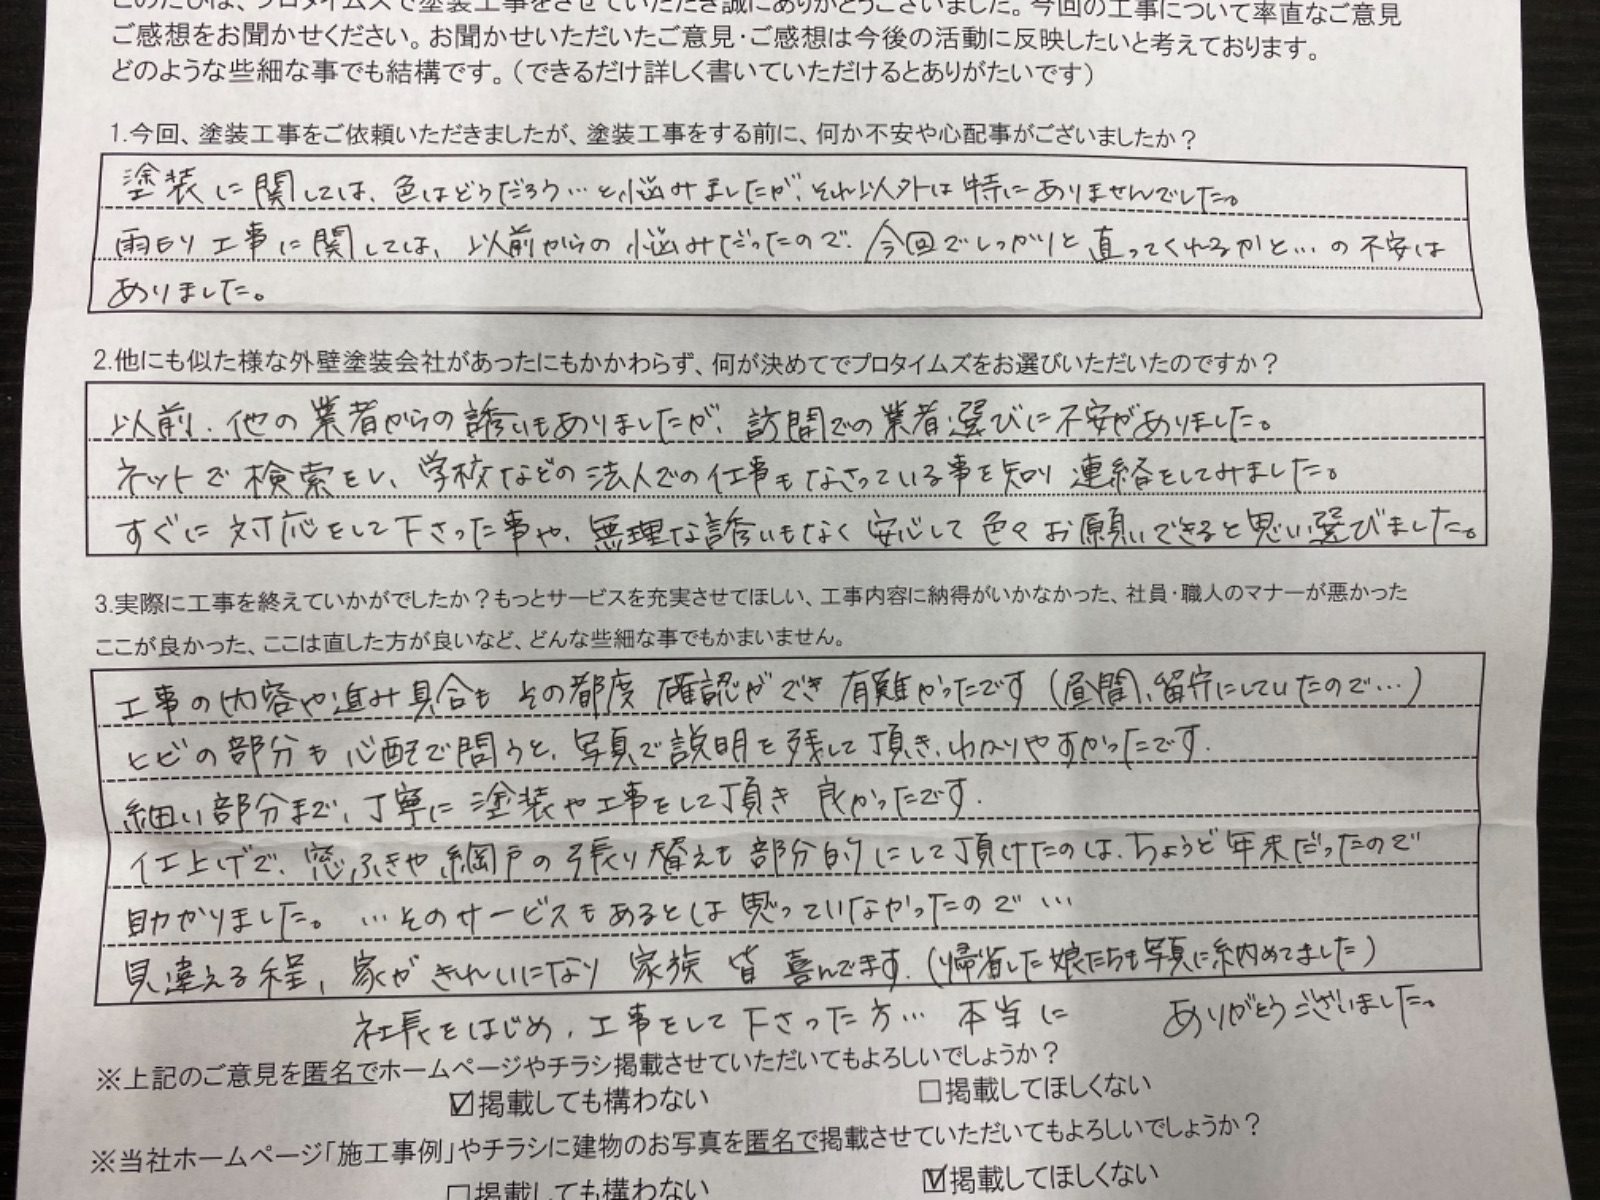 このたびは、プロタイムズで塗装工事をさせていただき誠にありがとうございました。今回の工事について率直なご意見
ご感想をお聞かせください。お聞かせいただいたご意見・ご感想は今後の活動に反映したいと考えております。
どのような些細な事でも結構です。(できるだけ詳しく書いていただけるとありがたいです)
1.今回、塗装工事をご依頼いただきましたが、塗装工事をする前に、何か不安や心配事がございましたか?
塗装に関しては、色はどうだろう…と悩みましたが、それ以外は特にありませんでした。
雨もり工事に関しては、以前からの悩みだったので、今回でしっかりと直ってくれるかと…の不安は
ありました。
2.他にも似た様な外壁塗装会社があったにもかかわらず、何が決めてでプロタイムズをお選びいただいたのですか?
以前、他の業者からの誘いもありましたが、訪問での業者選びに不安がありました。
ネットで検索をし、学校などの法人での仕事もなさっている事を知り連絡をしてみました。
すぐに対応をして下さった事や、無理な誘いもなく安心して色々お願いできると思い選びました。
3.実際に工事を終えていかがでしたか?もっとサービスを充実させてほしい、工事内容に納得がいかなかった、社員・職人のマナーが悪かった
ここが良かった、ここは直した方が良いなど、どんな些細な事でもかまいません。
工事の内容や進み具合もその都度確認ができ有難かったです(昼間、留守にしていたので…)
ヒビの部分も心配で問うと、写真で説明を残して頂き、わかりやすかったです.
細い部分まで、丁寧に塗装や工事をして頂き良かったです.
仕上げで、窓ふきや網戸の張り替えも部分的にして頂けたのは、ちょうど年末だったので
助かりました。…そのサービスもあるとは思っていなかったので…
見違える程、家がきれいになり家族皆喜んでます.(帰省した娘たちも写真に納めてました)
社長をはじめ、工事をして下さった方…本当に ありがとうございました。
※上記のご意見を匿名でホームページやチラシ掲載させていただいてもよろしいでしょうか?
☑掲載しても構わない □掲載してほしくない
※当社ホームページ「施工事例」やチラシに建物のお写真を匿名で掲載させていただいてもよろしいでしょうか?
□掲載しても構わない ☑掲載してほしくない